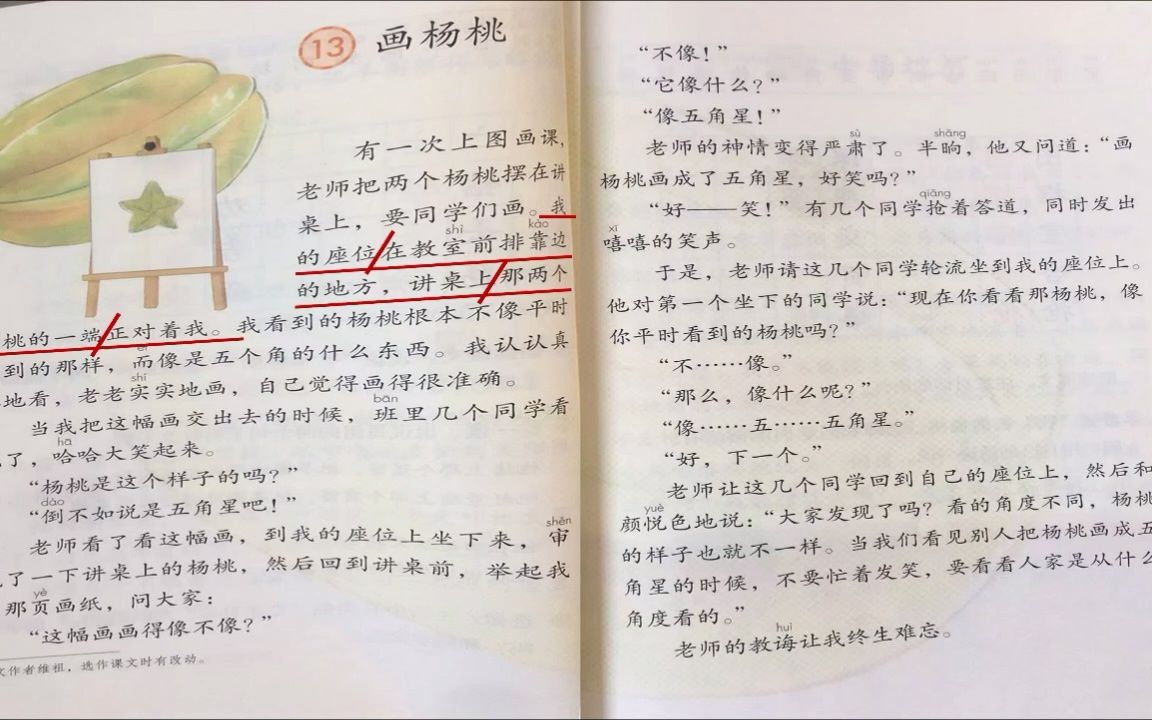 13 画杨桃
有一次上图画课，
老师把两个杨桃摆在讲
桌上，要同学们画。我
shì kào
的座位在教室前排靠边
的地方，讲桌上那两个
桃的一端正对着我。我看到的杨桃根本不像平时
到的那样，而像是五个角的什么东西。我认认真
shí
地看，老老实实地画，自己觉得画得很准确。
bān
当我把这幅画交出去的时候，班里几个同学看
hā
了，哈哈大笑起来。
“杨桃是这个样子的吗？”
dào
“倒不如说是五角星吧！”
shěn
老师看了看这幅画，到我的座位上坐下来，审
了一下讲桌上的杨桃，然后回到讲桌前，举起我
yè
那页画纸，问大家：
“这幅画画得像不像？”
文作者维祖，选作课文时有改动。
“不像！”
“它像什么？”
“像五角星！”
sù shǎng
老师的神情变得严肃了。半晌，他又问道：“画
杨桃画成了五角星，好笑吗？”
qiǎng
“好——笑！”有几个同学抢着答道，同时发出
xī
嘻嘻的笑声。
于是，老师请这几个同学轮流坐到我的座位上。
他对第一个坐下的同学说：“现在你看看那杨桃，像
你平时看到的杨桃吗？”
“不……像。”
“那么，像什么呢？”
“像……五……五角星。”
“好，下一个。”
老师让这几个同学回到自己的座位上，然后和
yuè
颜悦色地说：“大家发现了吗？看的角度不同，杨桃
的样子也就不一样。当我们看见别人把杨桃画成五
角星的时候，不要忙着发笑，要看看人家是从什么
角度看的。”
huì
老师的教诲让我终生难忘。